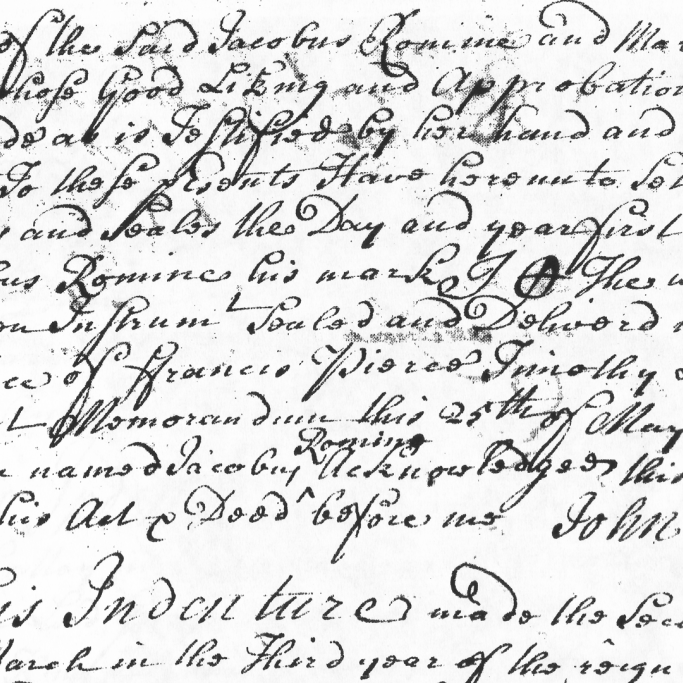 of the Said Jacobus Romine and Mar
hose Good Liking and Approbation
de as is Testified by her hand and
To these presents Have hereunto Set
s and Seales the Day and year first
bus Romine his mark The
on Instrumt Sealed and Deliverd
ce of Francis Pierce Timothy
t Memorandum this 25th of May
named Jacobus ^Romine Acknowledged this
his Act & Deed before me John
is Indenture made the Seco
March in the Third year of the reign